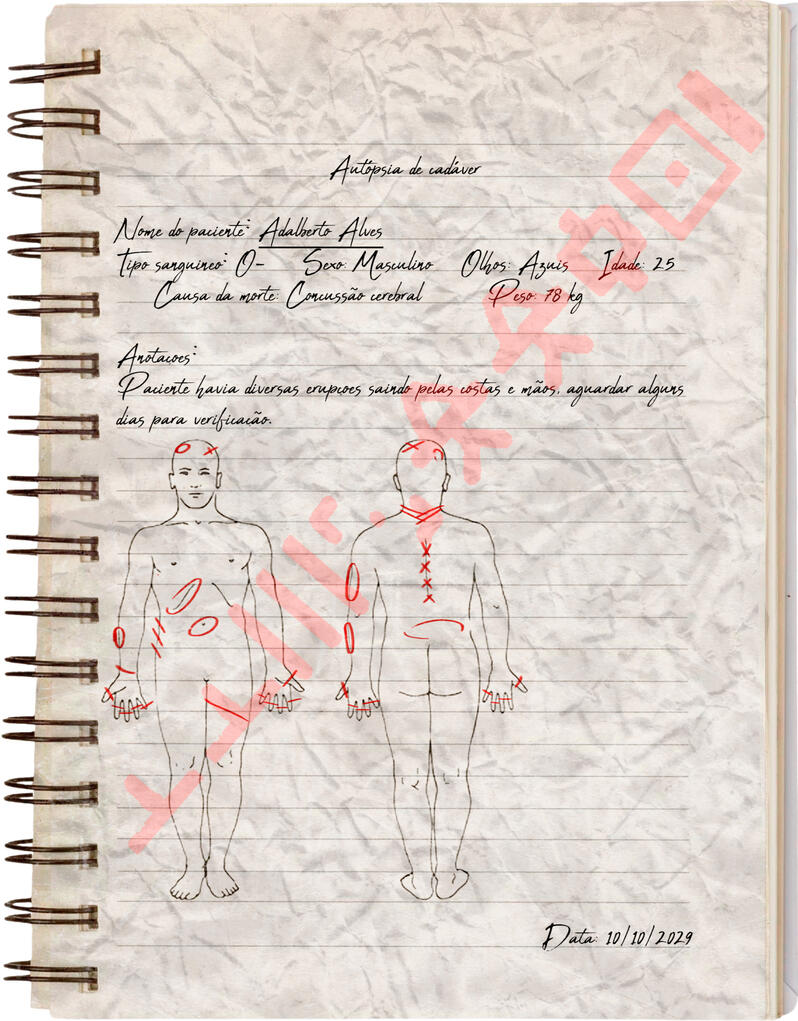 Autópsia de cadáver
Nome do paciente: Adalberto Alves
Tipo sanguineo: O- Sexo: Masculino Olhos: Azuis Idade: 25
Causa da morte: Concussão cerebral Peso: 78 kg
Anotaçoes:
Paciente havia diversas erupçoes saindo pelas costas e mãos, aguardar alguns
dias para verificação.
Data: 10/10/2029